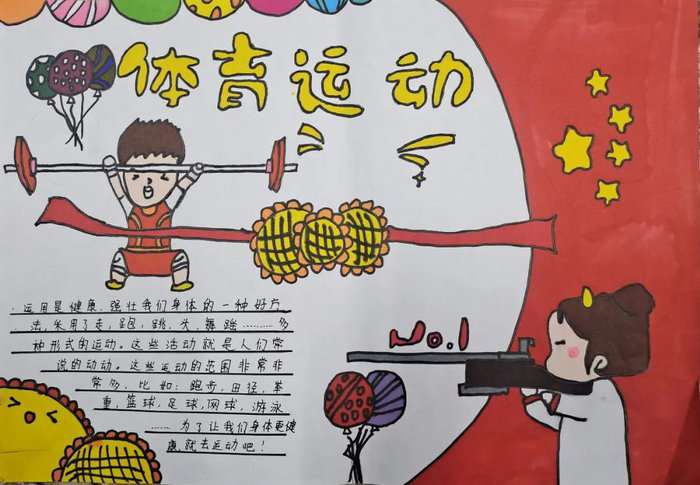 体育运动
运用是健康、强壮我们身体的一种好方
法,采用了走,跑,跳,大,舞蹈………多
种形式的运动。这些活动就是人们常
说的动动。这些运动的范围非常非
常多,比如:跑步,田径,举
重,篮球,足球,网球,游泳
……为了让我们身体更健
康,就去运动吧!
No.1